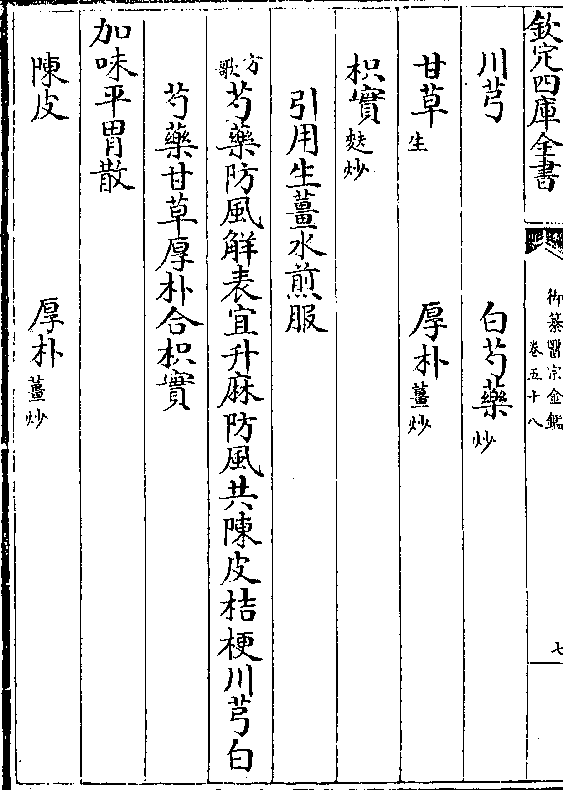 欽定四庫全書
御纂醫宗金鑑
卷五十八
七
川芎 白芍藥炒
甘草生 厚朴薑炒
枳實麩炒
引用生薑水煎服
方歌 芍藥防風解表宜升麻防風共陳皮桔梗川芎白
芍藥甘草厚朴合枳實
加味平胃散
陳皮 厚朴薑炒